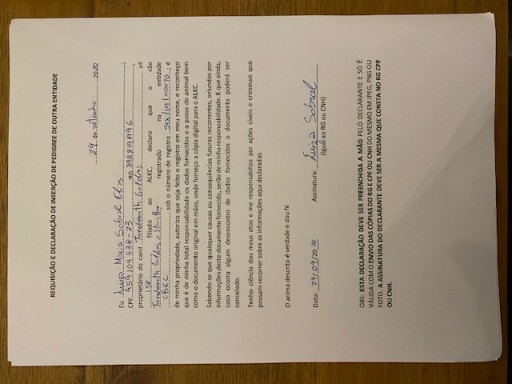 REQUISIÇÃO E DECLARAÇÃO DE INSERÇÃO DE PEDIGREE DE OUTRA ENTIDADE
29 de setembro 2020
Eu Luiza Maria Sobral
CPF RG
proprietário do canil nº
158 filiado ao ALKC, declaro que o cão
registrado na entidade
CBKC sob o número de registro e
de minha propriedade, autorizo que seja feito o registro em meu nome, e reconheço
que é de minha total responsabilidade os dados fornecidos e a posse do animal bem
como o documento original em mãos, onde forneço a cópia digital para o ALKC.
Sabendo se que quaisquer causas ou consequências futuras recorrentes, oriundas por
informações deste documento fornecido, serão de minha responsabilidade. E que ainda,
caso ocorra algum desencontro de dados fornecidos o documento poderá ser
cancelado.
Tenho ciência dos meus atos e me responsabilizo por ações cíveis e criminais que
possam recorrer sobre as informações aqui declaradas.
O acima descrito é verdade e dou fé
Data: 29/09/2020 Assinatura: Luiza Sobral
(Igual ao RG ou CNH)
OBS: ESTA DECLARAÇÃO DEVE SER PREENCHIDA A MÃO PELO DECLARANTE E SÓ É
VÁLIDA COM O ENVIO DAS CÓPIAS DO RG E CPF OU CNH DO MESMO EM JPEG, PNG OU
FOTO. A ASSINATURA DO DECLARANTE DEVE SER A MESMA QUE CONSTA NO RG CPF
OU CNH.